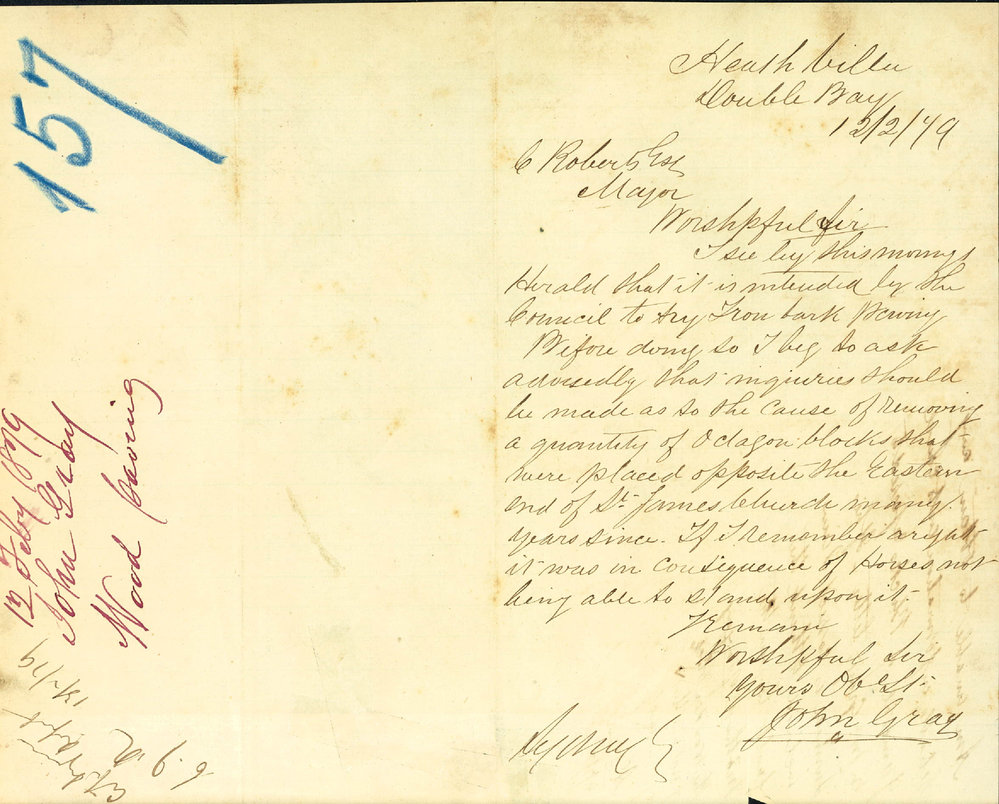 157
12 Feby 1879
John Gray
Wood paving
13/2/79
Heath Villa
Double Bay
12/2/79
C Roberts Esq
Mayor
Worshpful Sir
I see by this mornings
Herald that it is intended by the
Council to try Iron bark Paving
Before doing so I beg to ask
advisedly that inquiries should
be made as to the cause of removing
a quantity of Octagon blocks that
were placed opposite the Eastern
end of St James Church many
years since. If I remember aright
it was in consequence of Horses not
being able to stand upon it.
I remain
Worshpful Sir
Yours Obt St
John Gray
Sydney